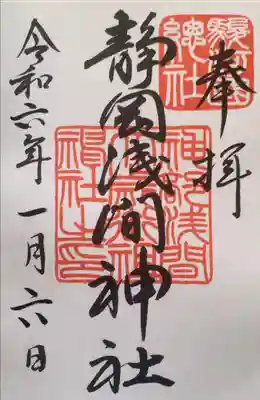 奉拝
駿河總社
静岡浅間神社
令和六年一月六日